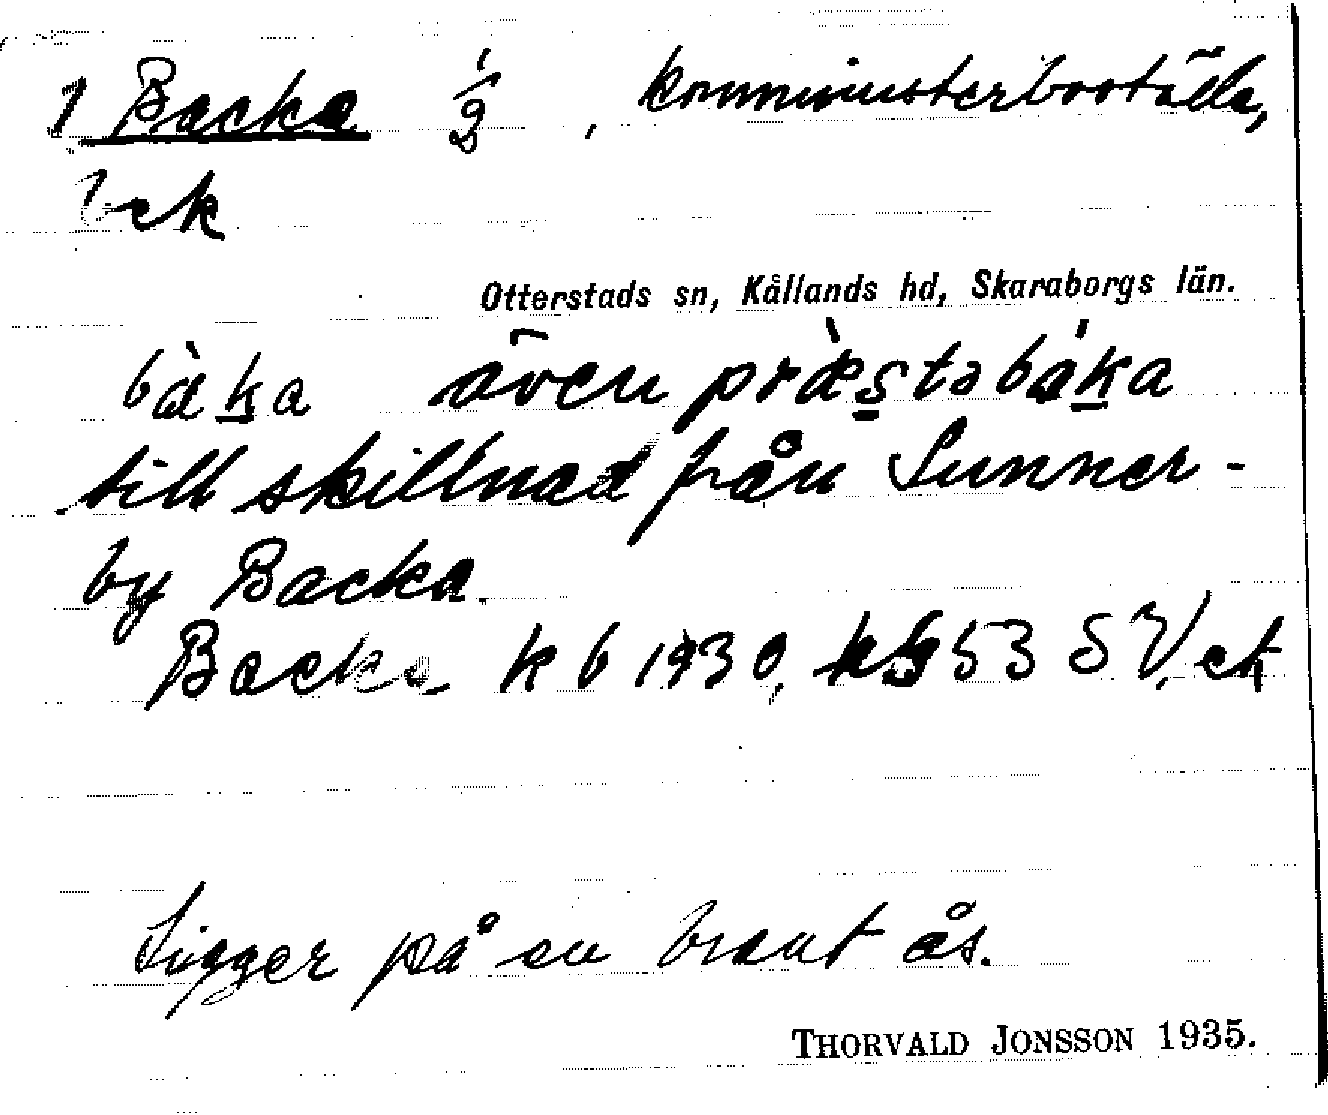 1 Backa 1/2, komministerboställe,
1 ek
Otterstads sn, Kållands hd, Skaraborgs län.
bàḵa även præ̀s̱təbáḵa
till skillnad från Sunner-
by Backa.
Backa kb 1930, 53 SV, ek
Ligger på en brant ås.
THORVALD JONSSON 1935.